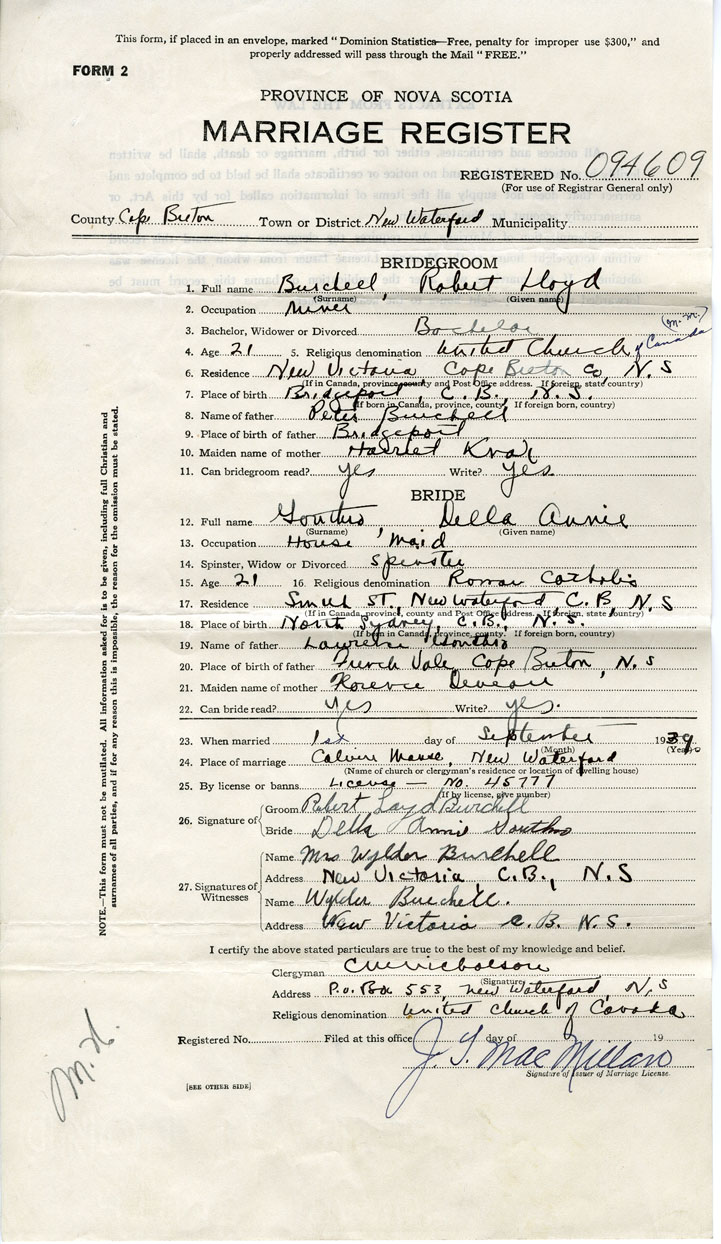 This form, if placed in an envelope, marked "Dominion Statistics—Free, penalty for improper use $300," and
properly addressed will pass through the Mail "FREE."
FORM 2
PROVINCE OF NOVA SCOTIA
MARRIAGE REGISTER
REGISTERED No. 094609
(For use of Registrar General only)
County Cape Breton Town or District New Waterford Municipality
BRIDEGROOM
1. Full name Burchell, Robert Lloyd
(Surname) (Given name)
2. Occupation Miner
3. Bachelor, Widower or Divorced Bachelor (M. M.)
4. Age 21 5. Religious denomination United Church of Canada
6. Residence New Victoria Cape Breton Co, N.S
(If in Canada, province, county and Post Office address. If foreign, state country)
7. Place of birth Bridgeport, C.B. N.S.
(If born in Canada, province, county. If foreign born, country)
8. Name of father Peter Burchell
9. Place of birth of father Bridgeport
10. Maiden name of mother Harriet
11. Can bridegroom read? yes Write? yes.
BRIDE
12. Full name Gouthro, Della Annie
(Surname) (Given name)
13. Occupation House maid
14. Spinster, Widow or Divorced Spinster
15. Age 21 16. Religious denomination Roman Catholic
17. Residence St, New Waterford C.B, N.S
(If in Canada, province, county and Post Office address. If foreign, state country)
18. Place of birth North Sydney, C.B., N.S.
(If born in Canada, province, county. If foreign born, country)
19. Name of father Gouthro
20. Place of birth of father French Vale, Cape Breton, N.S
21. Maiden name of mother Florence Deveau
22. Can bride read? yes Write? yes.
23. When married 1st day of September 1939
(Month) (Year)
24. Place of marriage Calvin Manse, New Waterford
(Name of church or clergyman's residence or location of dwelling house)
25. By license or banns License — No. 45777
(If by license, give number)
26. Signature of Groom Robert Loyd Burchell
Bride Della Annie Gouthro
27. Signatures of Witnesses Name Mrs Wylder Burchell
Address New Victoria C.B., N.S
Name Wylder Burchell.
Address New Victoria C.B. N.S.
I certify the above stated particulars are true to the best of my knowledge and belief.
Clergyman
(Signature)
Address P.O. Box 553, New Waterford, N.S
Religious denomination United Church of Canada
Registered No. Filed at this office day of 19
J. S. MacMillan
Signature of Issuer of Marriage License
[SEE OTHER SIDE]
NOTE.—This form must not be mutilated. All information asked for is to be given, including full Christian and
surnames of all parties, and if for any reason this is impossible, the reason for the omission must be stated.